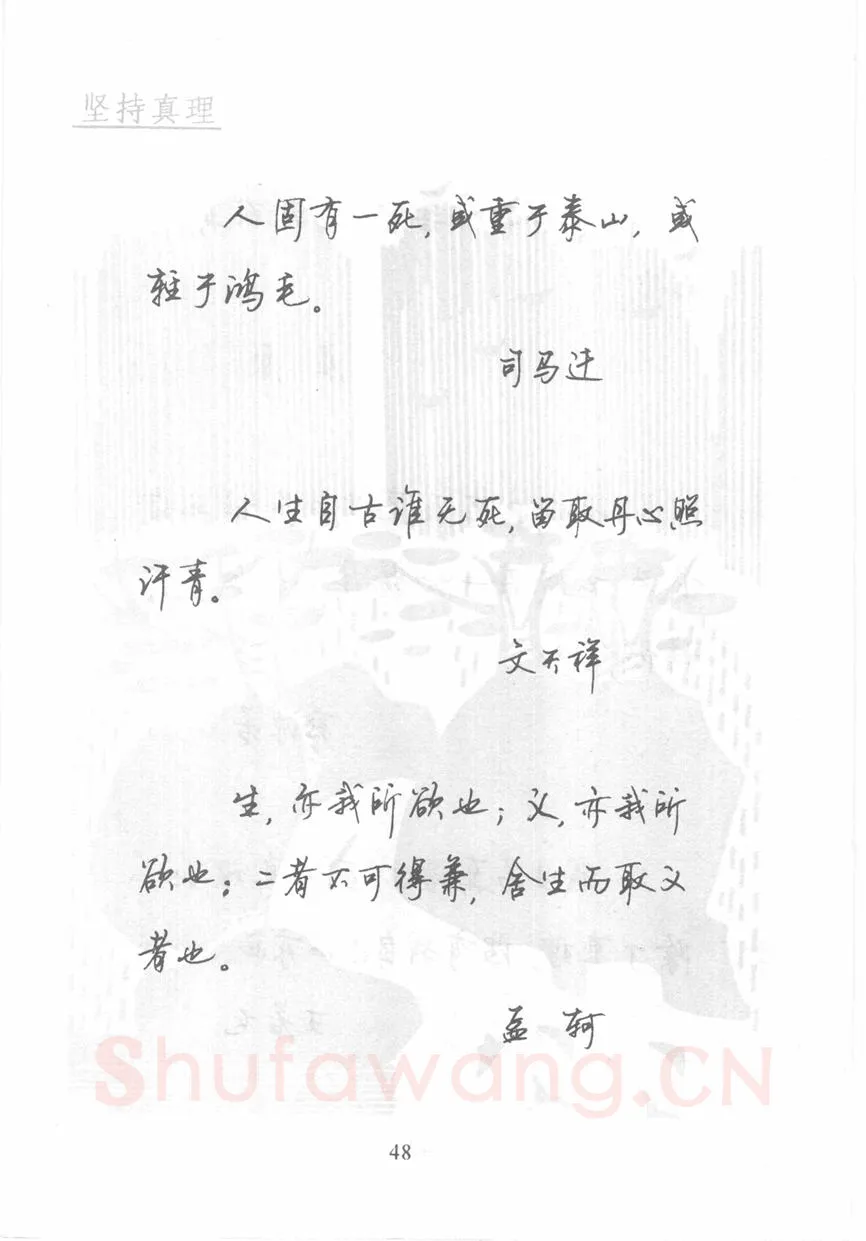 坚持真理
人固有一死,或重于泰山,或
轻于鸿毛。
司马迁
人生自古谁无死,留取丹心照
汗青。
文天祥
生,亦我所欲也;义,亦我所
欲也;二者不可得兼,舍生而取义
者也。
孟 轲
Shufawang.CN
48